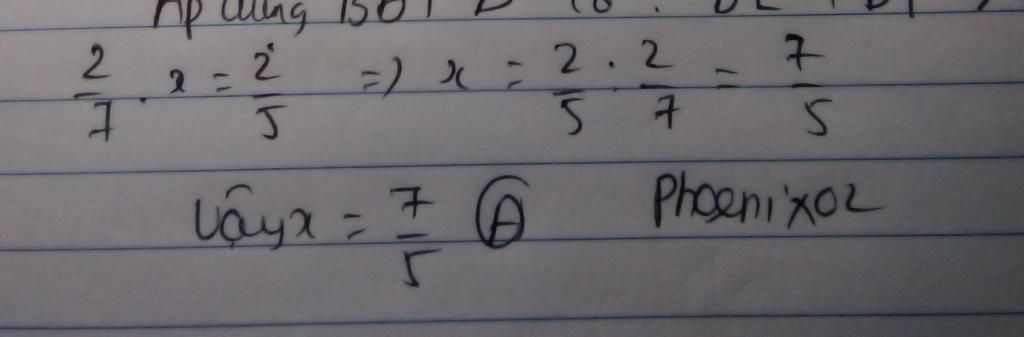 Áp dụng BĐT
2/7 . x = 2/5 => x = 2/5 . 2/7 = 7/5
Vậy x = 7/5 A Phoenix02